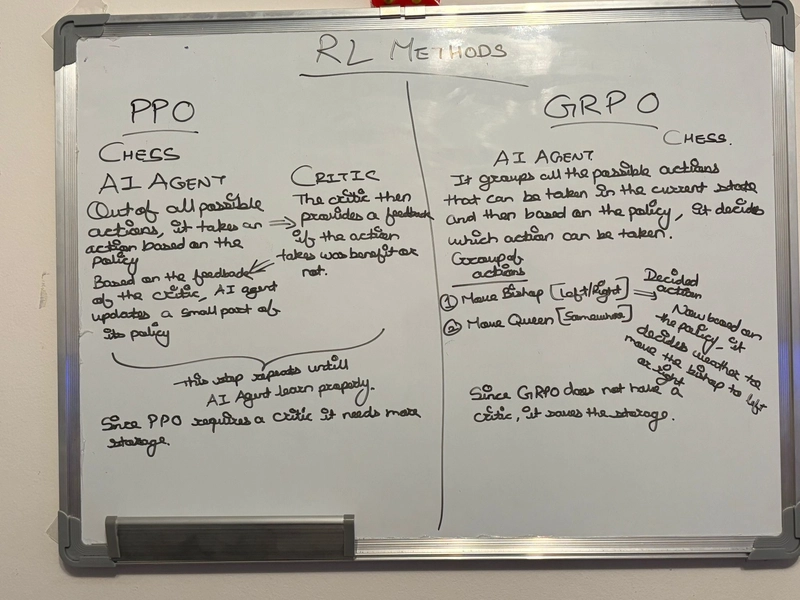 RL METHODS
PPO
CHESS
AI AGENT
Out of all possible
actions, it takes an
action based on the
policy
CRITIC
The critic then
provides a feedback
if the action
takes was benefit or
not.
Based on the feedback
of the critic, AI agent
updates a small part of
its policy
This step repeats untill
AI Agent learn properly.
Since PPO requires a critic it needs more
storage
GRPO
CHESS.
AI AGENT
It groups all the possible actions
that can be taken in the current state
and then based on the policy, it decides
which action can be taken.
Group of
actions
① Move Bishop [Left/Right]
② Move Queen [Somewhere]
Decided
action
Now based on
the policy, it
decides weather to
move the bishop to left
or right
Since GRPO does not have a
critic, it saves the storage.